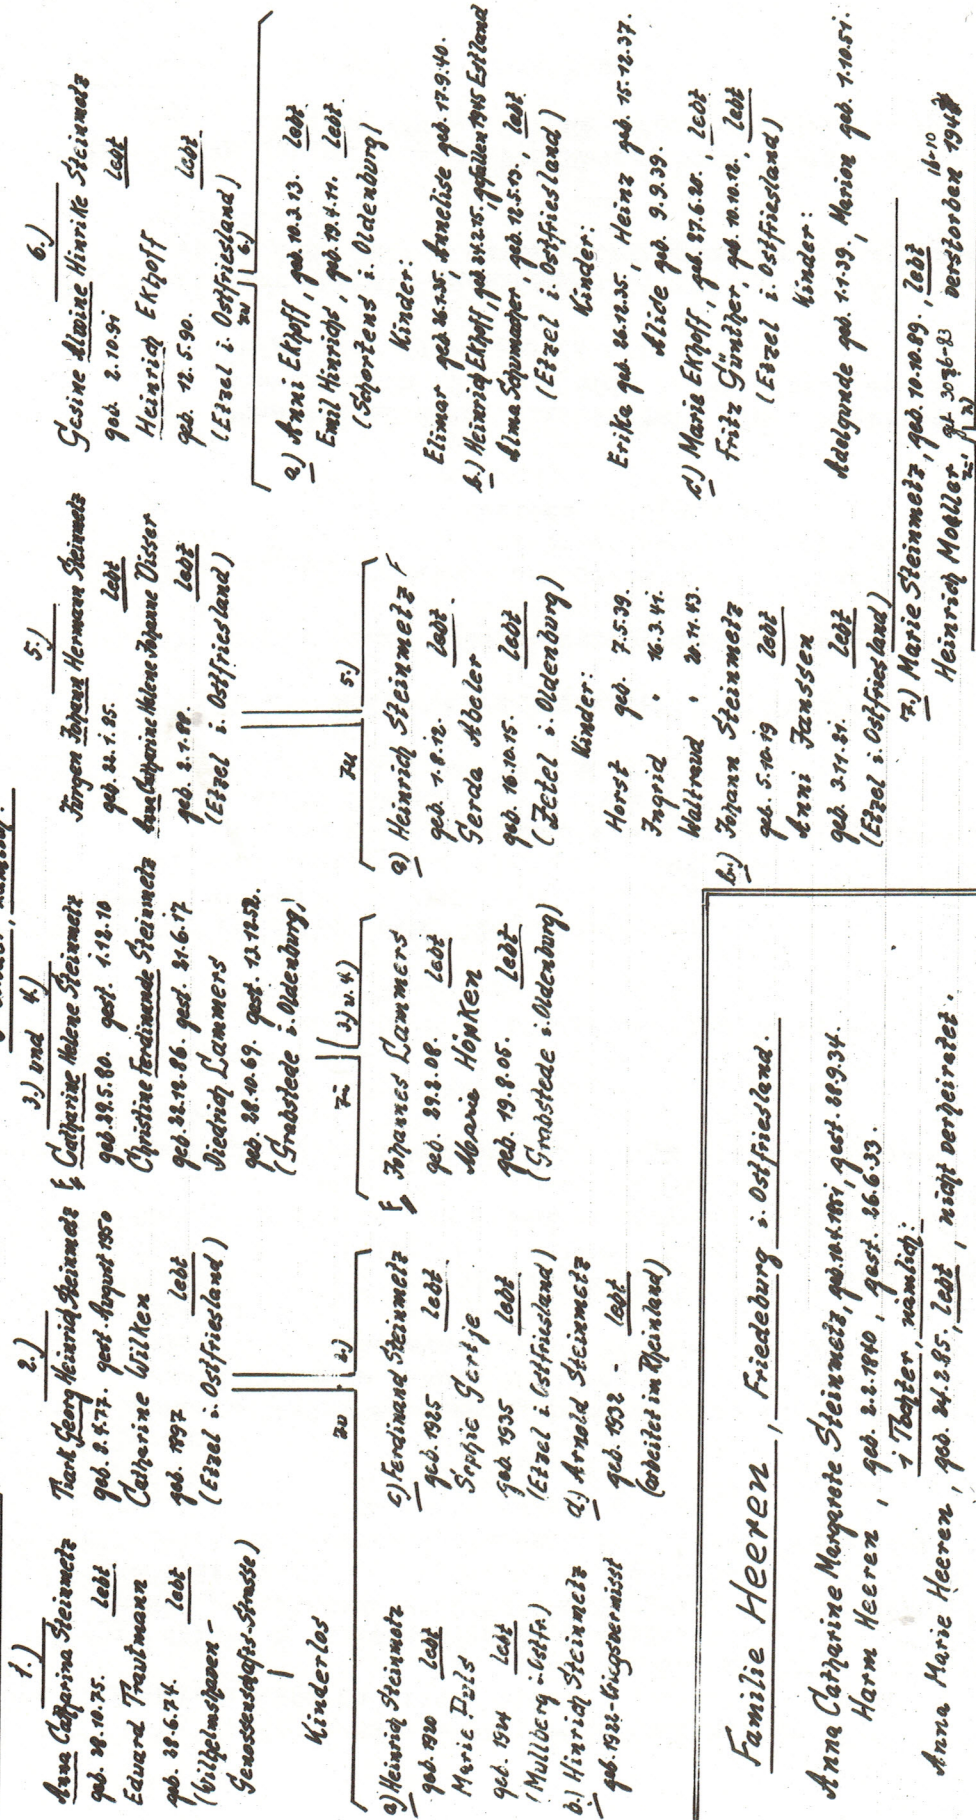 1.)
Anna Catharina Steinmetz
geb. 28.10.75. lebt
Eduard Trautmann
geb. 28.6.74. lebt
(Wilhelmshaven-
Genossenschafts-Strasse)
Kinderlos
2.)
Tiark Georg Heinrich Steinmetz
geb. 8.4.77. gest. August 1950
Catharine Wilken
geb. 1897 lebt
(Etzel i. Ostfriesland)
zu 2.)
a) Heinrich Steinmetz
geb. 1920 lebt
Marie
geb. 1924 lebt
(Mullberg i. Ostfr.)
b.) Hinrich Steinmetz
geb. 1922-Kriegsvermisst
c.) Ferdinand Steinmetz
geb. 1925 lebt
Sophie Gertje
geb. 1935 lebt
(Etzel i. Ostfriesland)
d.) Arnold Steinmetz
geb. 1932 - lebt
(arbeitet im Rheinland)
3.) und 4.)
Catharine Helene Steinmetz
geb. 29.5.80. gest. 1.12.10
Christine Ferdinande Steinmetz
geb. 22.12.86. gest. 21.6.17
Diedrich Lammers
geb. 28.10.69. gest. 13.12.52.
(Grabstede i. Oldenburg)
zu 3) u. 4)
Johannes Lammers
geb. 29.2.08. lebt
Marie Höpken
geb. 19.8.05. lebt
(Grabstede i. Oldenburg)
5.)
Jürgen Johann Hermann Steinmetz
geb. 22.1.85. lebt
Anna Catharine Helene Johanne Disser
geb. 2.1.88. lebt
(Etzel i. Ostfriesland)
zu 5.)
a) Heinrich Steinmetz
geb. 1.8.12. lebt.
Gerda Abeler
geb. 16.10.15. lebt
(Zetel i. Oldenburg)
Kinder:
Horst geb. 7.5.39.
Ingrid " 16.3.41.
Waltraud " 20.11.43.
b.) Johann Steinmetz
geb. 5.10.19 lebt
Anni Janssen
geb. 3.11.21. lebt
(Etzel i. Ostfriesland)
6.)
Gesine Alwine Hinrike Steinmetz
geb. 2.10.91 lebt
Heinrich Ekhoff
geb. 12.5.90. lebt.
(Etzel i. Ostfriesland)
zu 6.)
a.) Anni Ekhoff, geb. 10.2.13. lebt
Emil Hinrichs, geb. 19.4.11. lebt.
(Schortens i. Oldenburg)
Kinder:
Elimar geb. 26.1.35, Annelise geb. 17.9.40.
b.) Heinrich Ekhoff, geb. 24.2.15. gefallen 1945 Estland
Alma Schumacher, geb. 12.5.13., lebt
(Etzel i. Ostfriesland)
Kinder:
Erika geb. 26.12.35, Heinz geb. 15.12.37.
Alide geb. 9.9.39.
c.) Marie Ekhoff, geb. 27.6.20., lebt
Fritz Günther, geb. 10.10.12., lebt
(Etzel i. Ostfriesland)
Kinder:
Adelgunde geb. 1.1.39, Marion geb. 1.10.51.
7.) Marie Steinmetz, geb. 10.10.89., lebt
Heinrich Moeller verstorben
zu 7.)
Familie Heeren, Friedeburg i. Ostfriesland.
Anna Catharine Margarete Steinmetz, geb. 10.4.1851, gest. 28.9.34.
Harm Heeren, geb. 2.2.1840, gest. 26.6.33.
1 Tochter, nämlich:
Anna Marie Heeren, geb. 24.2.85, lebt, nicht verheiratet.